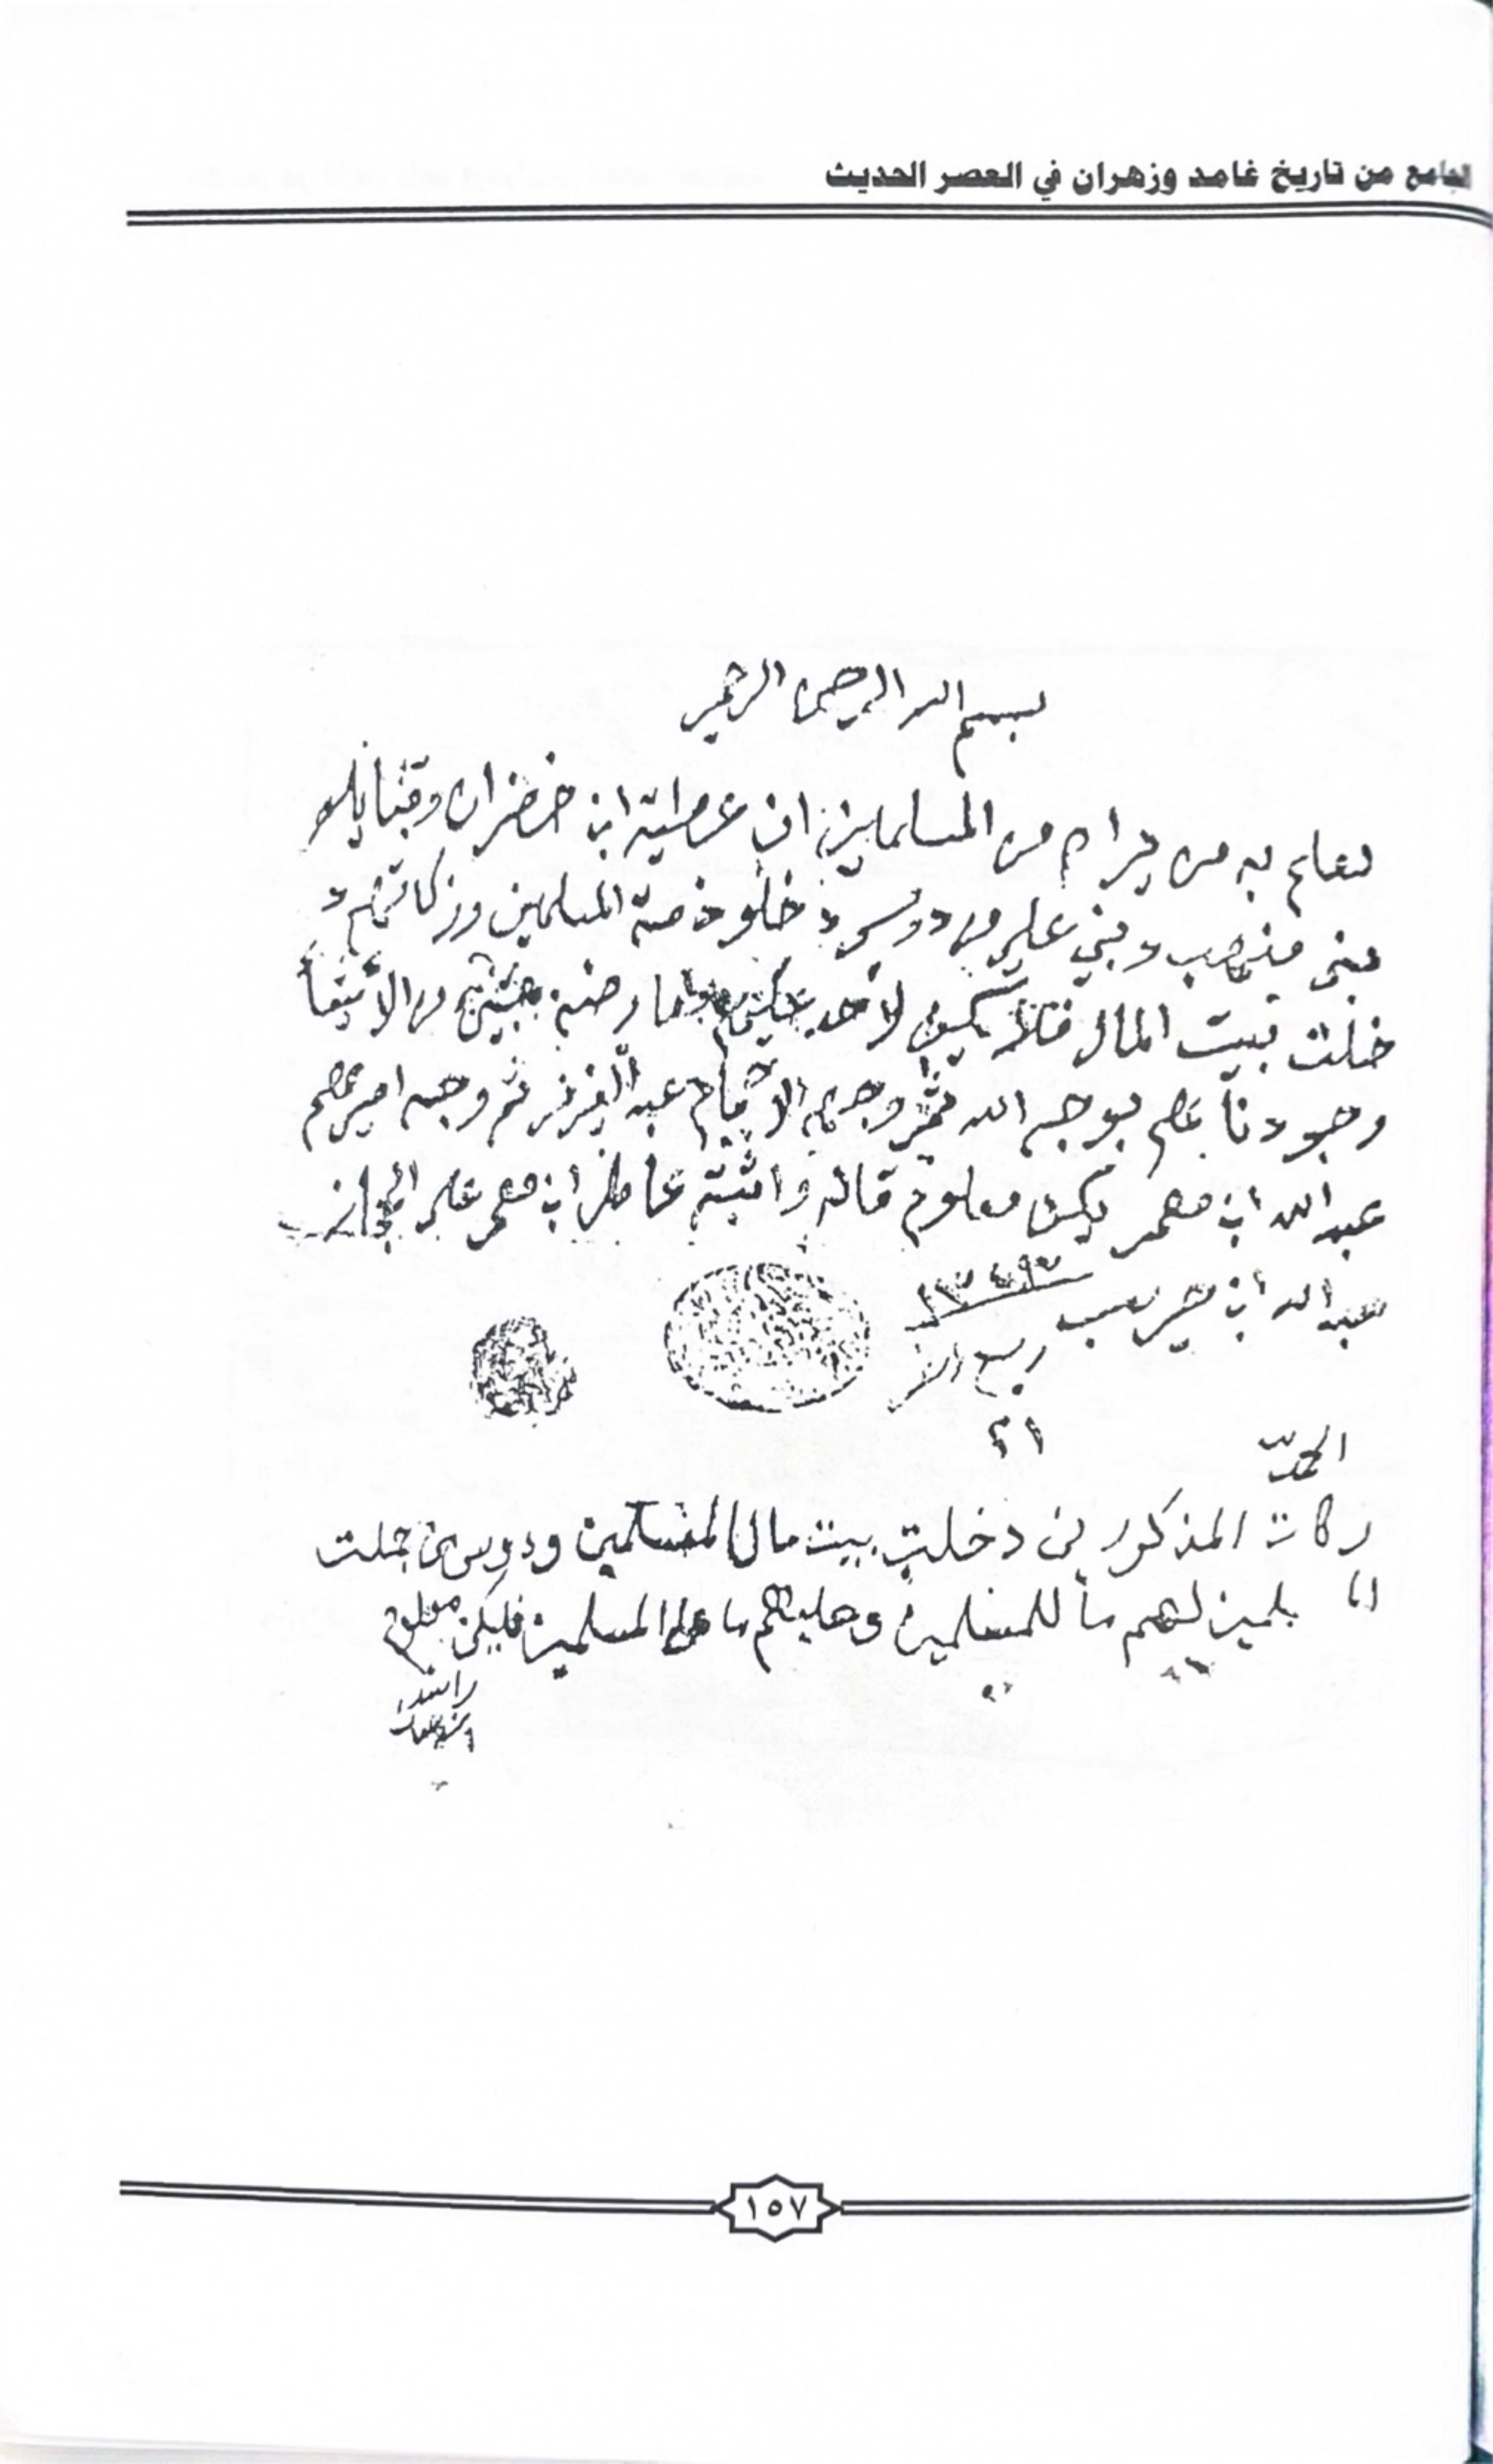 الجامع من تاريخ غامد وزهران في العصر الحديث
بسم الله الرحمن الرحيم
يعلم به من يراه من المسلمين ان عطية ابن خضران وقبايله
بني منهب وبني علي من دوس دخلو ذمة المسلمين وزكاتهم د
خلت بيت المال فلا يكون لأحد عليهم معارضه من الأشقيا
وجودنا عليهم بوجه الله ثم وجه الامام عبد العزيز ثم وجه اميرهم
عبدالله ابن معمر يكون معلوم قاله واثبته عامل ابن معمر على
عبدالله ابن
ربيع
٢١
الحمد لله
زكات المذكورين دخلت بيت مال المسلمين ودوس من جملت
المسلمين لهم ما للمسلمين وعليهم ما على المسلمين فليكن معلوم
راشد
١٥٧